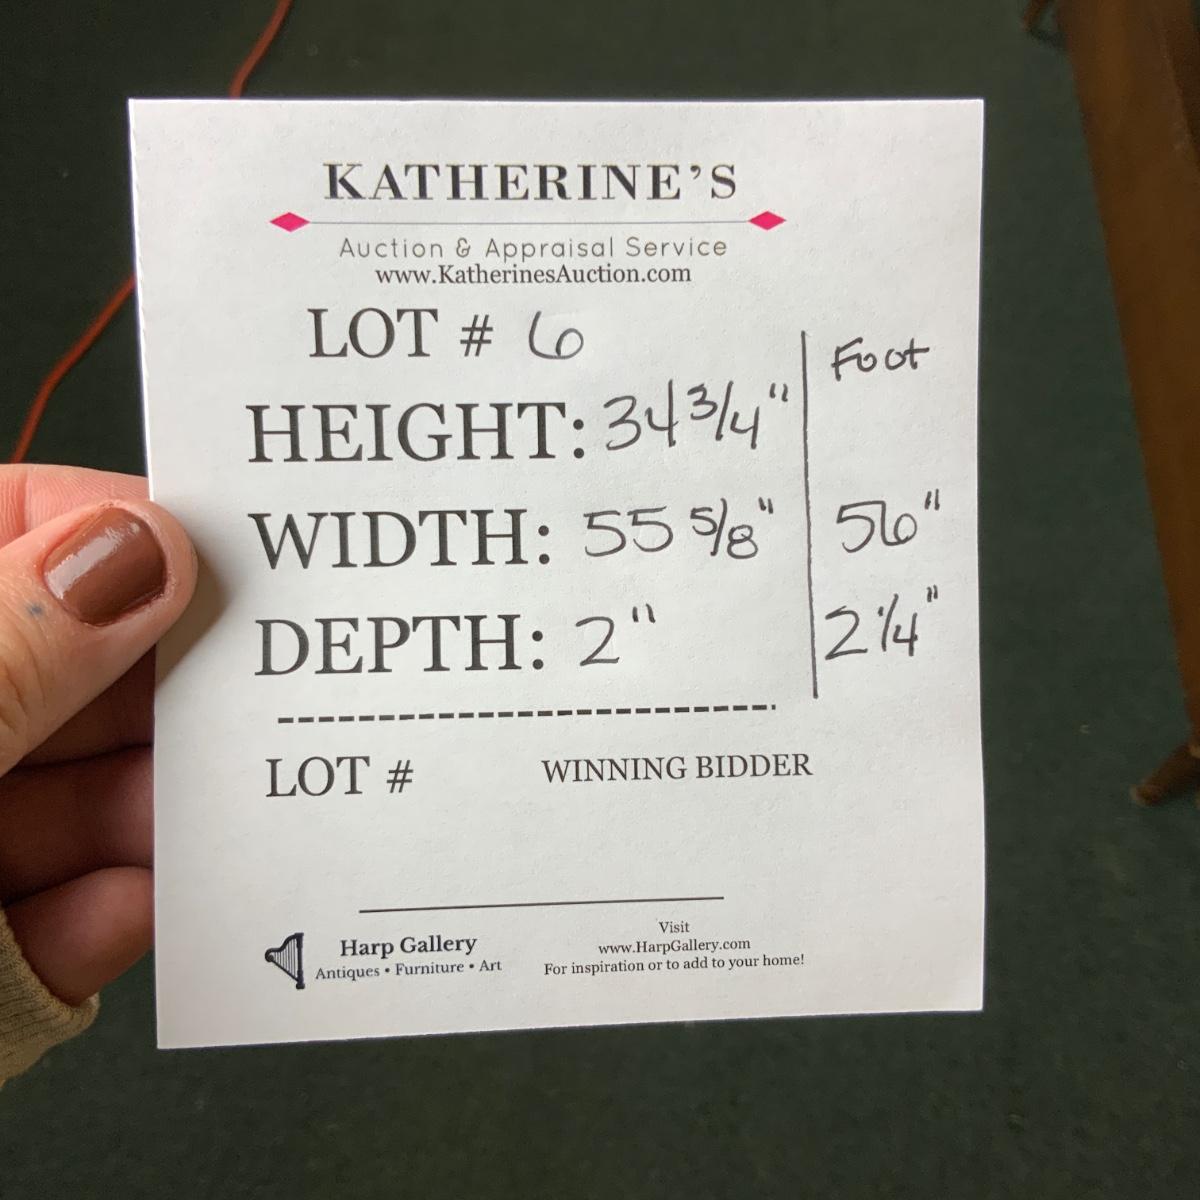 KATHERINE'S
Auction & Appraisal Service
www.KatherinesAuction.com
LOT # 6
Foot
HEIGHT: 34 3/4"
WIDTH: 55 5/8" 56"
DEPTH: 2" 2 1/4"
LOT # WINNING BIDDER
Harp Gallery
Antiques • Furniture • Art
Visit
www.HarpGallery.com
For inspiration or to add to your home!